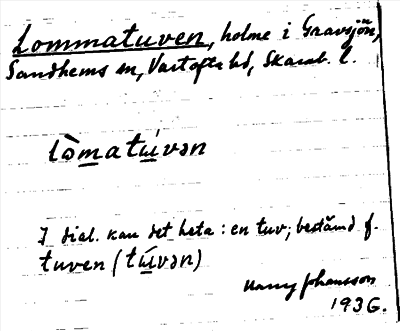 Lommatuven, holme i Gravsjön,
Sandhems sn, Vartofta hd, Skarab. l.
lòmatúvən
I dial. kan det heta: en tuv; bestämd f.
tuven (túvən)
Harry Johansson
1936.